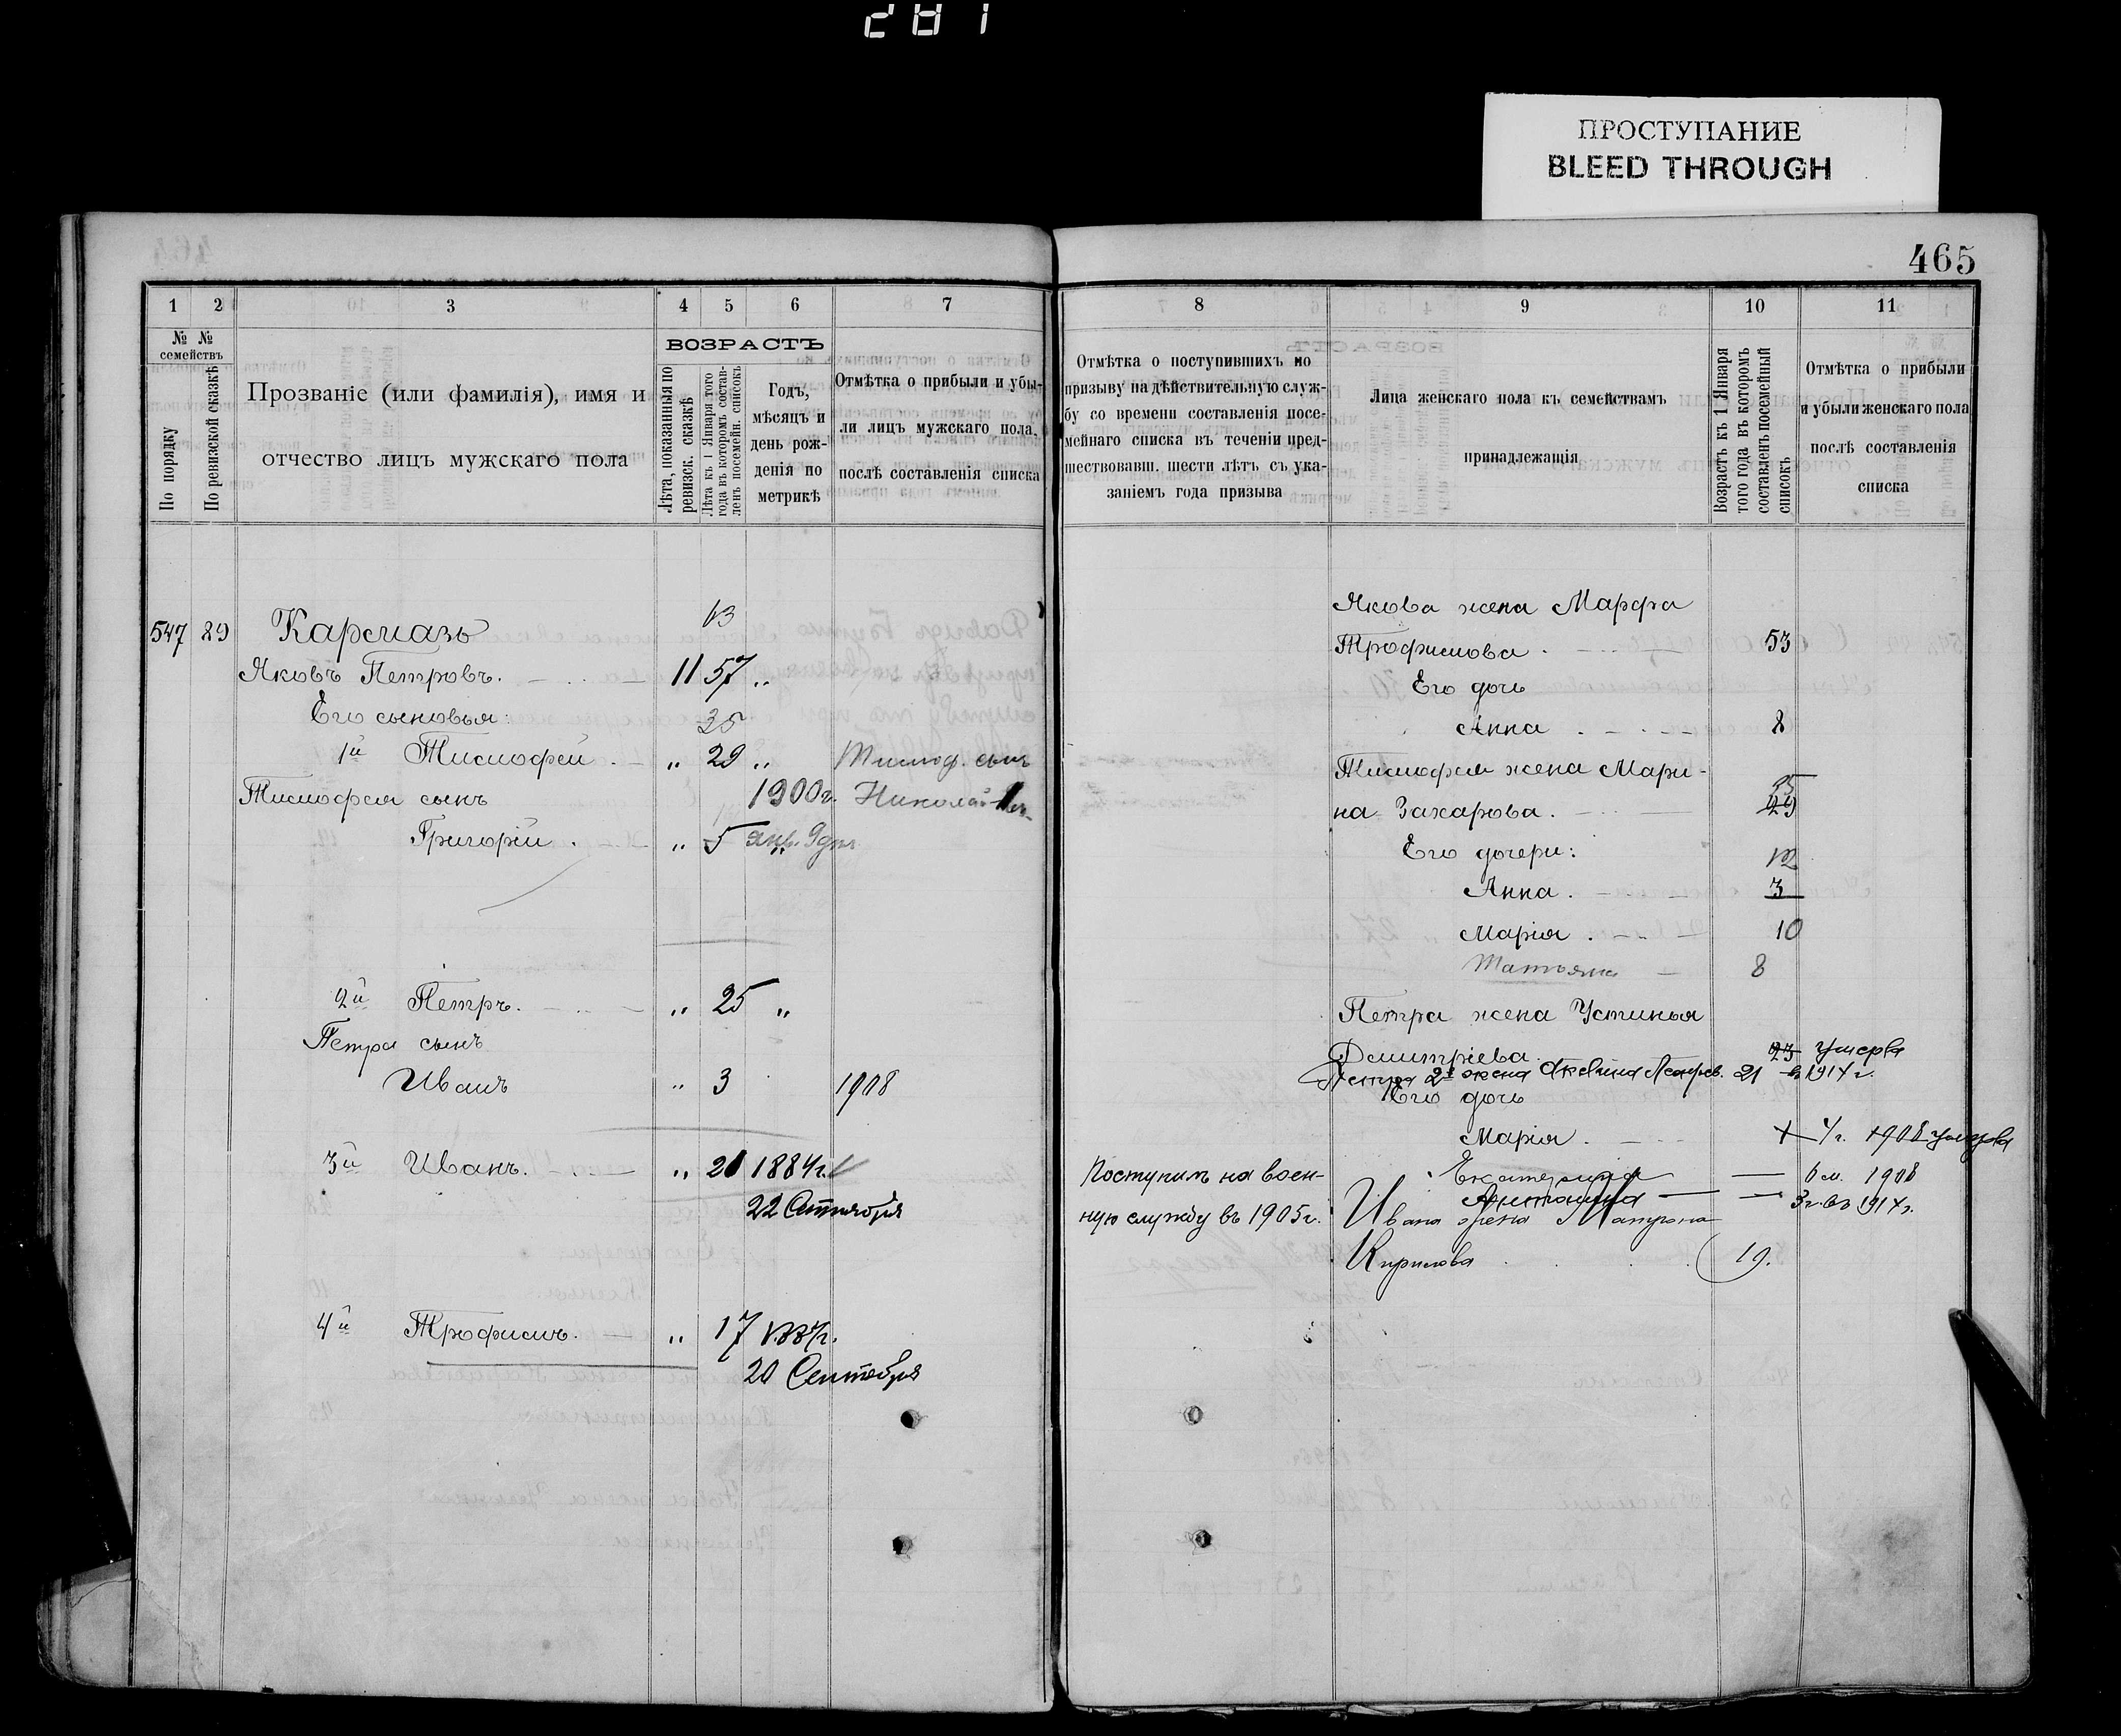 281
ПРОСТУПАНИЕ
BLEED THROUGH
465
1 2 3 4 5 6 7
№ №
семействъ
По порядку
По ревизской сказкѣ
Прозваніе (или фамилія), имя и
отчество лицъ мужскаго пола
ВОЗРАСТЪ
Лѣта, показанныя по
ревизск. сказкѣ
Лѣта къ 1 Января того
года въ которомъ состав-
ленъ посемейн. списокъ
Годъ,
мѣсяцъ и
день рож-
денія по
метрикѣ
Отмѣтка о прибыли и убы-
ли лицъ мужскаго пола,
послѣ составленія списка
547 89 Кармазь 63
Яковъ Петровъ. 11 57 „
Его сыновья: 35
1й Тимофей „ 29 „ Тимоф. сынъ
Тимофея сынъ 1900г. Николай
Григорій „ 5 янв. 9 дня
2й Петръ. „ 25 „
Петра сынъ
Иванъ „ 3 1908
3й Иванъ. „ 21 1884г.
22 Сентября
4й Трофимъ. „ 17 1887г.
20 Сентября
8 9 10 11
Отмѣтка о поступившихъ по
призыву на дѣйствительную служ-
бу со времени составленія посе-
мейнаго списка въ теченіи пред-
шествовавш. шести лѣтъ съ ука-
заніемъ года призыва
Лица женскаго пола къ семействамъ
принадлежащія
Возрастъ къ 1 Января
того года въ которомъ
составленъ посемейный
списокъ
Отмѣтка о прибыли
и убыли женскаго пола
послѣ составленія
списка
Якова жена Марфа
Трофимова. 53
Его дочь
Анна 8
Тимофея жена Мари-
35
на Захарова. 29
Его дочери: 12
Анна. 3
Марія. 10
Татьяна 8
Петра жена Устинья
Дмитріева. 23 умерла
Петра 2я жена Аквилина 21 в 191 г.
Его дочь
Марія. 4г. 1908 умерла
Екатерина 6 м. 1908
Антонина 3 г. въ 191 г.
Поступилъ на воен-
ную службу въ 1905г.
Ивана жена Матрона
Кирилова 19.